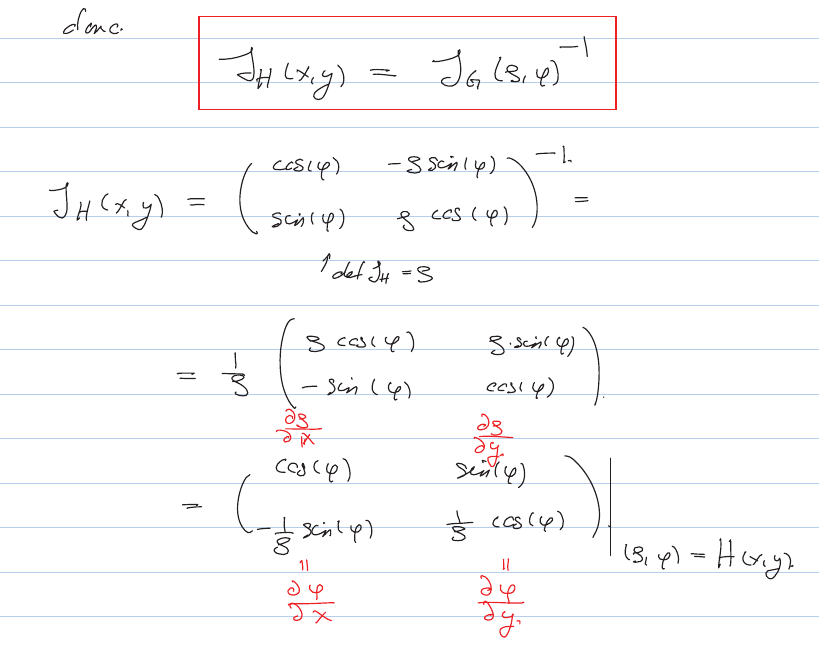 donc
J_H (x,y) = J_G (ρ,φ)^{-1}
J_H (x,y) = ( cos(φ) -ρ sin(φ) ; sin(φ) ρ cos(φ) )^{-1} =
↑ det J_H = ρ
= 1/ρ ( ρ cos(φ) ρ·sin(φ) ; -sin(φ) cos(φ) )
∂ρ/∂x ∂ρ/∂y
= ( cos(φ) sin(φ) ; -1/ρ sin(φ) 1/ρ cos(φ) ) | (ρ,φ) = H(x,y).
= =
∂φ/∂x ∂φ/∂y